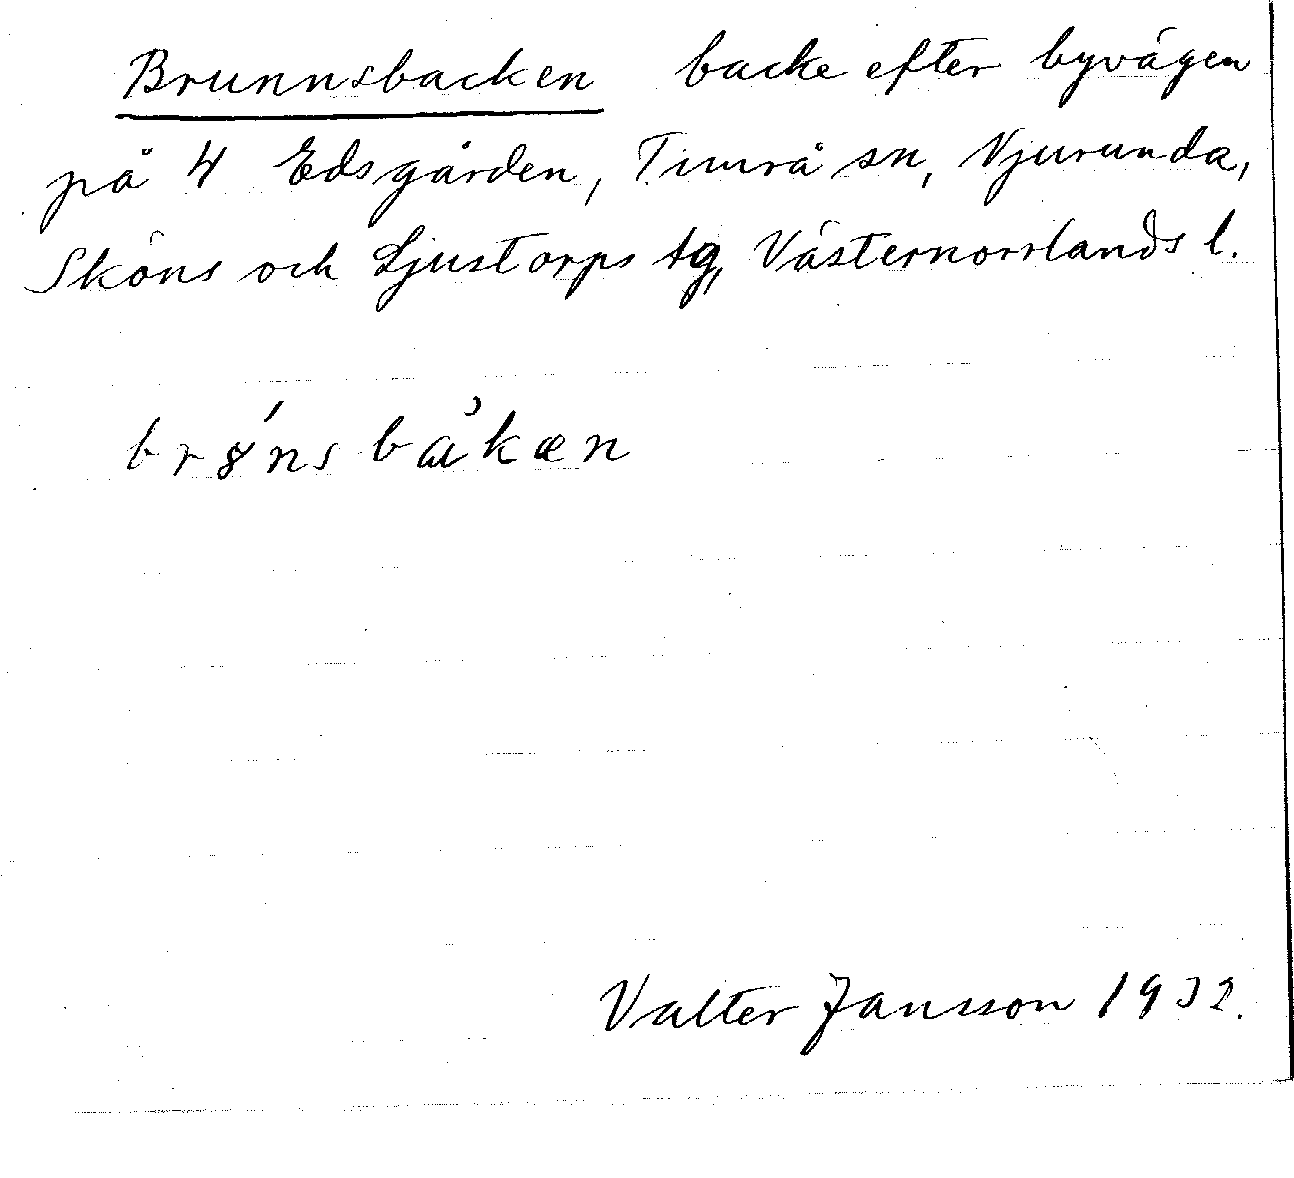 Brunnsbacken backe efter byvägen
på 4 Edsgården, Timrå sn, Njurunda,
Sköns och Ljustorps tg, Västernorrlands l.
br8́nsbakæn
Valter Jansson 1932.